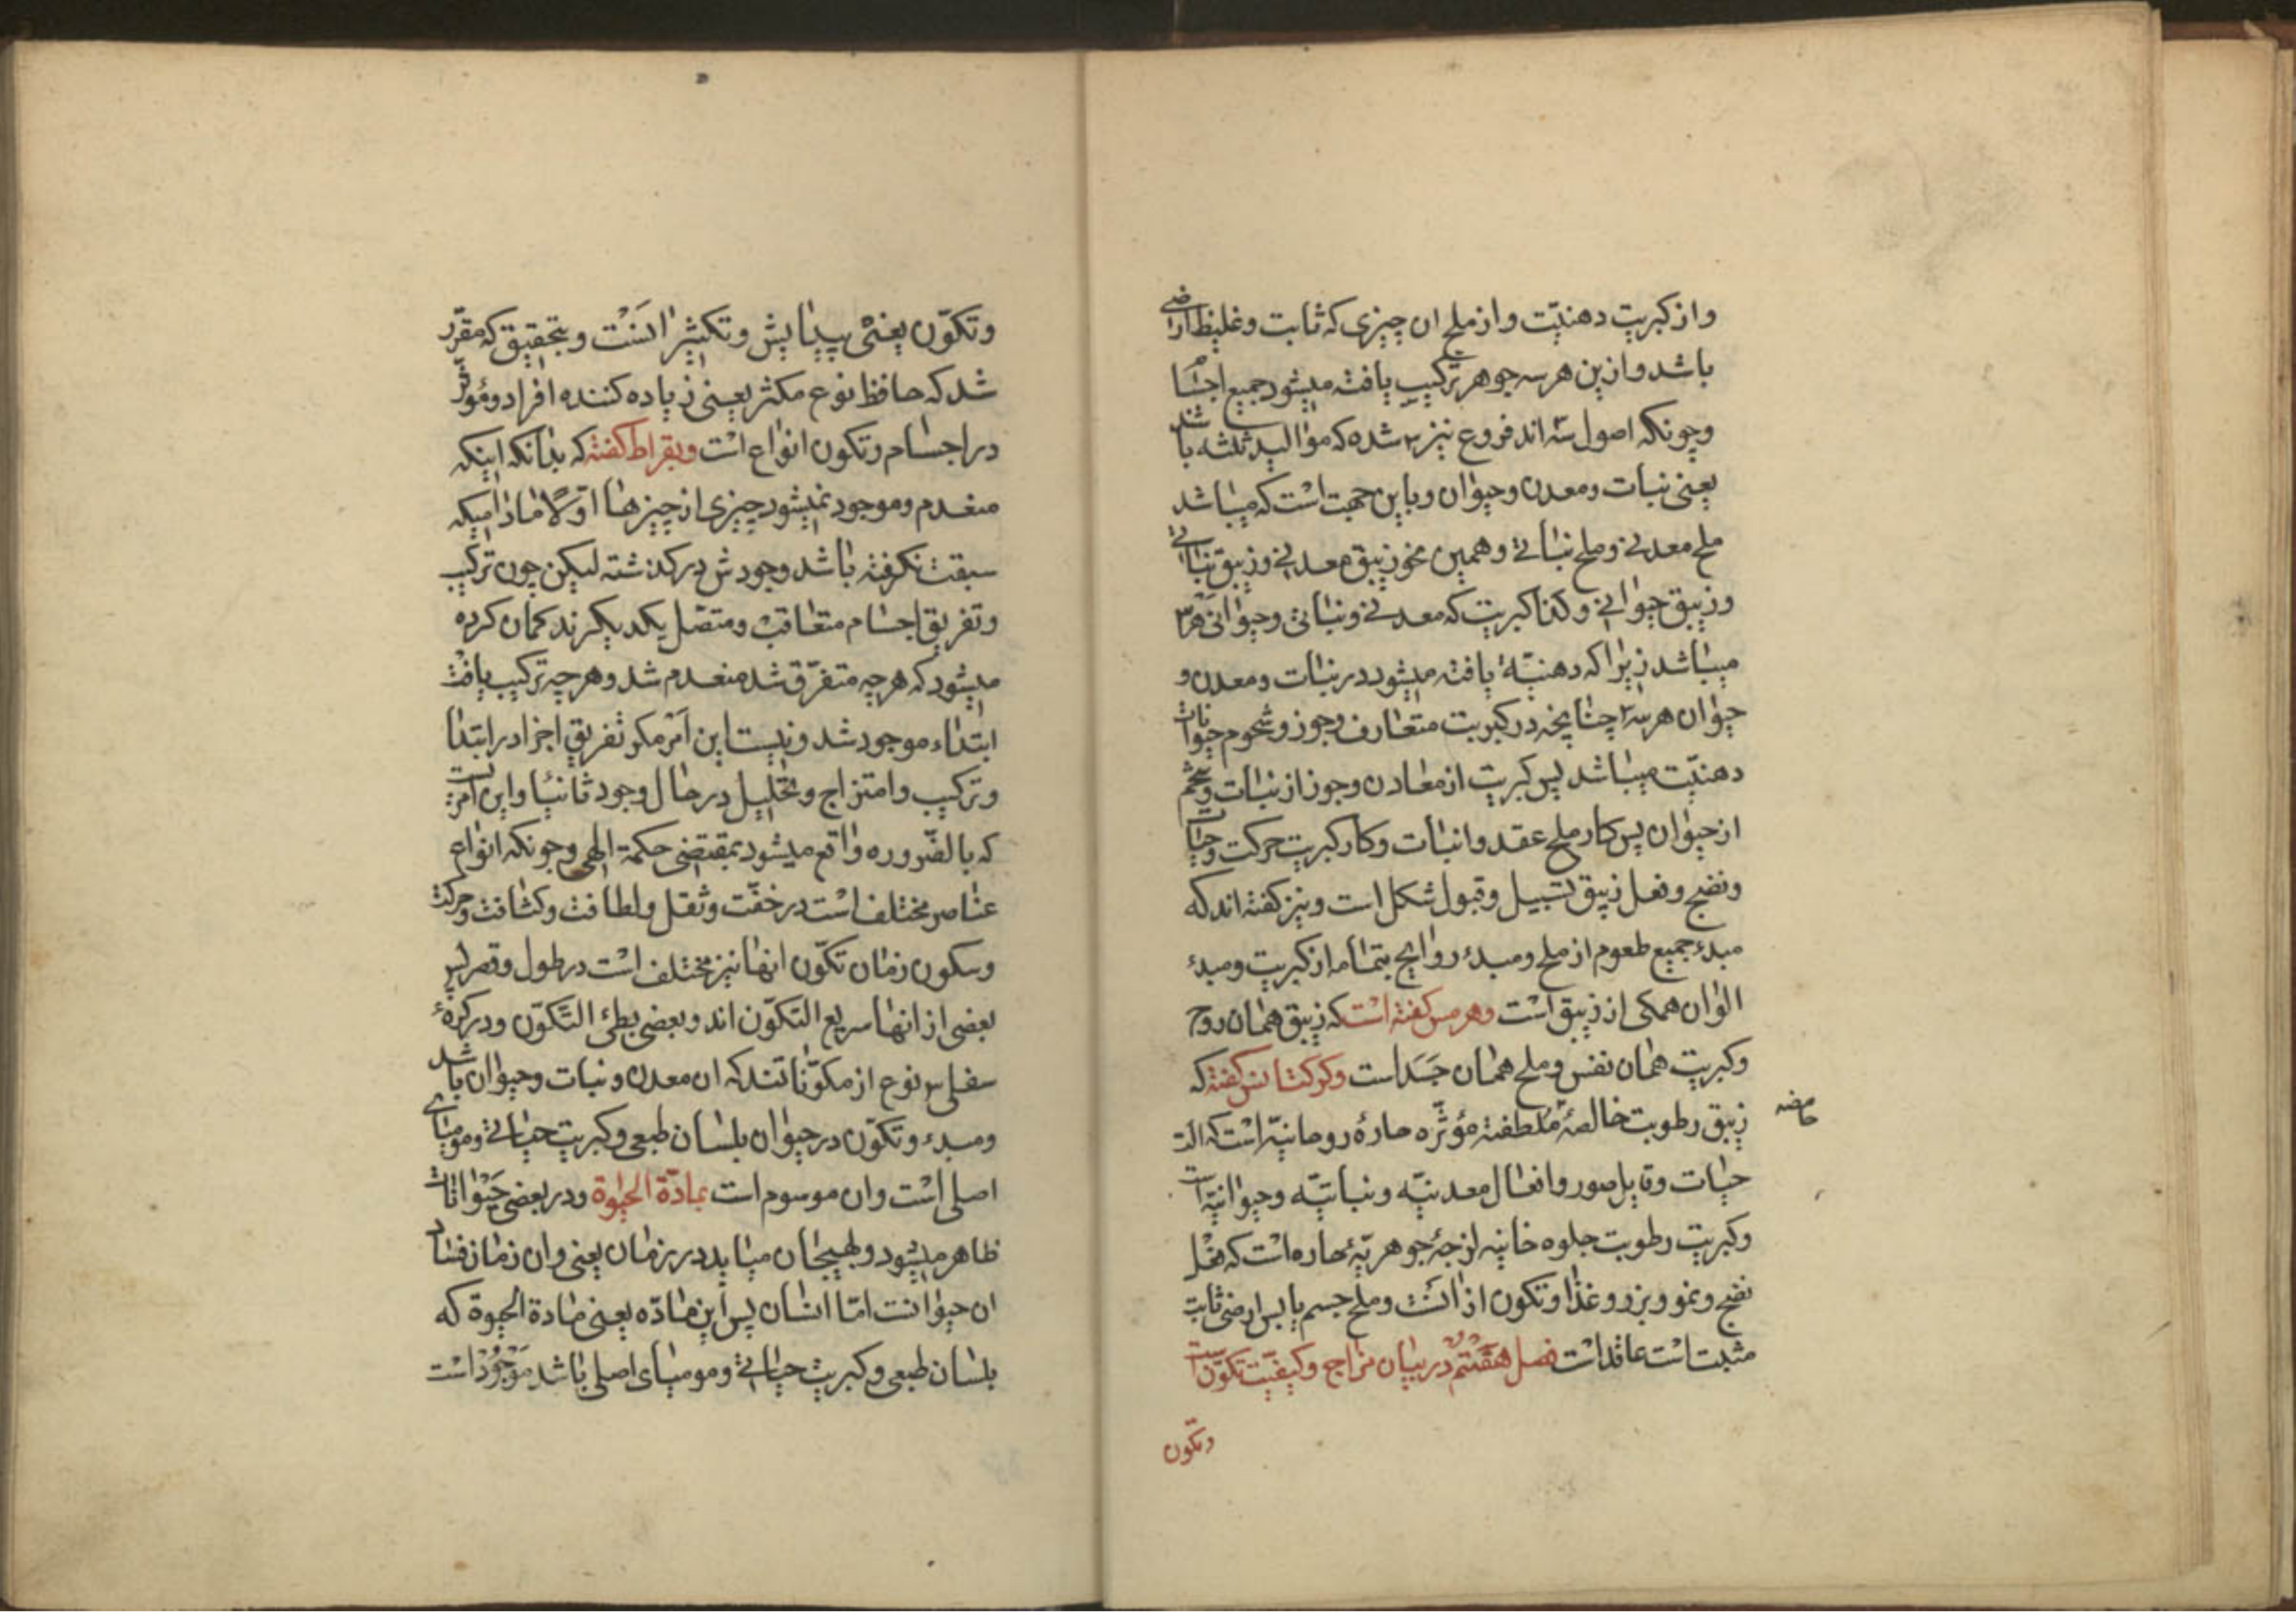 واز کبریت دهنیّت واز ملح ان چیزی که ثابت وغلیظ ارضی
باشد وازین هر سه جوهر ترکیب یافته میشود جمیع اجسام
وچونکه اصول سه اند فروع نیز ۳ شده که موالید ثلثه باشد
یعنی نبات ومعدن وحیوان وباین جهت است که میباشد
ملح معدنی وملح نباتی وهمین نحو زیبق معدنی وزیبق نباتی
وزیبق حیوانی وکذا کبریت که معدنی ونباتی وحیوانی هر ۳
میباشد زیرا که دهنیّة یافته میشود در نبات ومعدن و
حیوان هر سه ۳ چنانچه در کبریت متعارف وجوز وشحوم حیوانات
دهنیّت میباشد پس کبریت از معادن وجوز از نبات وشحم
از حیوان پس کار ملح عقد وانبات وکار کبریت حرکت وحیات
ونضج وفعل زیبق تسبیل وقبول شکل است ونیز کفته اند که
مبدء جمیع طعوم از ملح ومبدء روایح بتمامه از کبریت ومبدء
الوان همکی از زیبق است وهرمس کفته است که زیبق همان روح
وکبریت همان نفس وملح همان جَسَد است کفته که
زیبق رطوبت خالصهٔ ملطفهٔ مؤثّره حارهٔ روحانیّه است که الت
حامضه
حیات وقابل صور وافعال معدنیّه ونباتیّه وحیوانیّه است
وکبریت رطوبت جلوه جوهریّهٔ حاره است که
نضج ونمو وبزر وغذا وتکون از انست وملح جسم یابس ارضی ثابت
مثبت است عاقد است فصل هفتم در بیان مزاج وکیفیّت تکوّن است
وتکون
وتکوّن یعنی پیدایش وتکثیر انست وبتحقیق که مقرّر
شد که حافظ نوع مکثر یعنی زیاده کننده افراد ومؤثّر
در اجسام وتکون انواع است وبقراط کفته که بدانکه اینکه
منعدم وموجود نمیشود چیزی از چیزها اوّلا مادامیکه
سبقت نکرفته باشد وجودش در کذشته لیکن چون ترکیب
وتفریق اجسام متعاقب ومتصل یکدیکرند کمان کرده
میشود که هرچه متفرّق شد منعدم شد وهرچه ترکیب یافت
ابتداء موجود شد ونیست این امر مکر تفریق اجزا در ابتدا
وترکیب وامتزاج وتحلیل در حال وجود ثانیا واین امریست
که بالضّروره واقع میشود بمقتضی حکمة الهی وچونکه انواع
عناصر مختلف است در خفّت وثقل ولطافت وکثافت وحرکت
وسکون زمان تکوّن انها نیز مختلف است در طول وقصر پس
بعضی از انها سریع التکوّن اند وبعضی بطئ التّکوّن ودر کرهٔ
سفلی ۳ نوع از مکوّنا تند که ان معدن ونبات وحیوان باشد
ومبدء وتکوّن در حیوان بلسان طبعی وکبریت حیاتی ومومیای
اصلی است وان موسوم است بمادّة الحیوة ودر بعضی حیوانات
ظاهر میشود ولهیجان میاید در زمان یعنی وان زمان فساد
ان حیوانت امّا انسان پس این مادّه یعنی مادة الحیوة که
بلسان طبعی وکبریت حیاتی ومومیای اصلی باشد موجود است